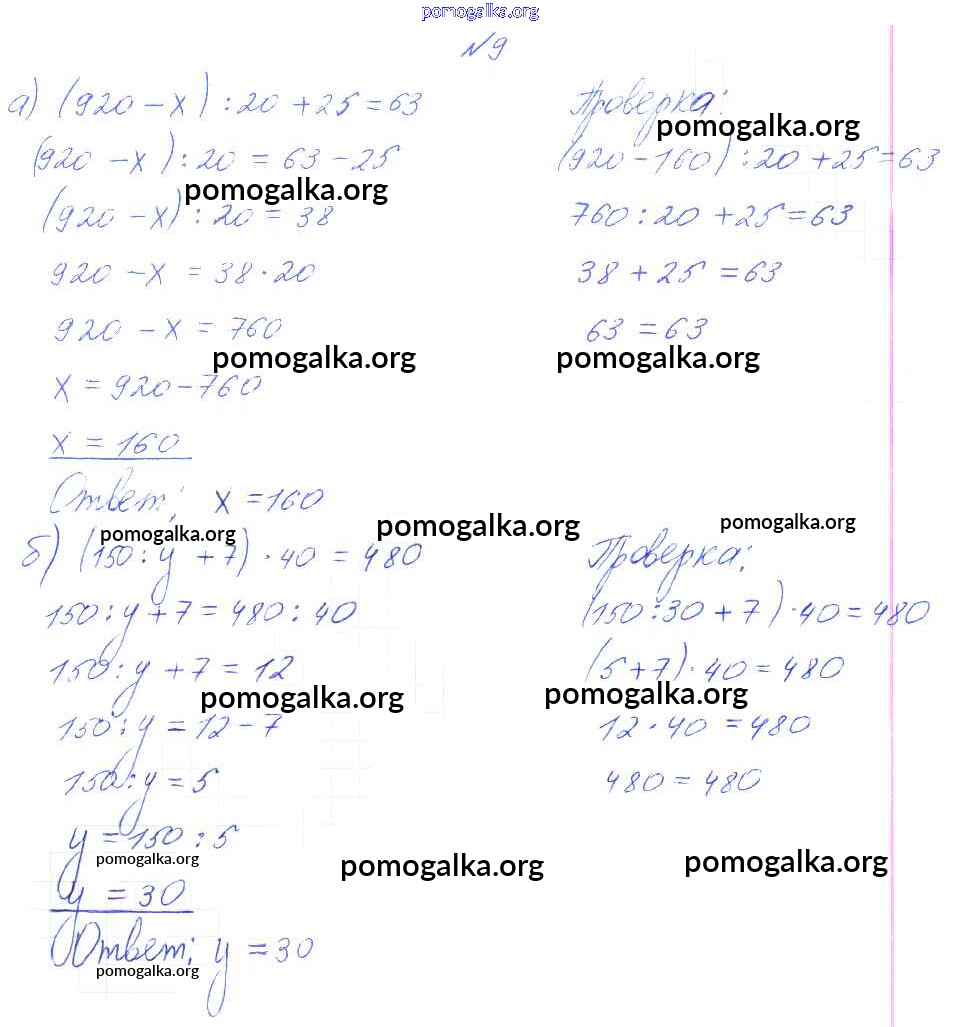 pomogalka.org
№9
а) (920 - x) : 20 + 25 = 63
(920 - x) : 20 = 63 - 25
pomogalka.org
(920 - x) : 20 = 38
920 - x = 38 · 20
920 - x = 760
pomogalka.org
x = 920 - 760
x = 160
Ответ: x = 160
Проверка:
pomogalka.org
(920 - 160) : 20 + 25 = 63
760 : 20 + 25 = 63
38 + 25 = 63
63 = 63
pomogalka.org
pomogalka.org
pomogalka.org
pomogalka.org
б) (150 : y + 7) · 40 = 480
150 : y + 7 = 480 : 40
150 : y + 7 = 12
pomogalka.org
150 : y = 12 - 7
150 : y = 5
y = 150 : 5
pomogalka.org
y = 30
Ответ: y = 30
pomogalka.org
Проверка:
(150 : 30 + 7) · 40 = 480
(5 + 7) · 40 = 480
pomogalka.org
12 · 40 = 480
480 = 480
pomogalka.org
pomogalka.org